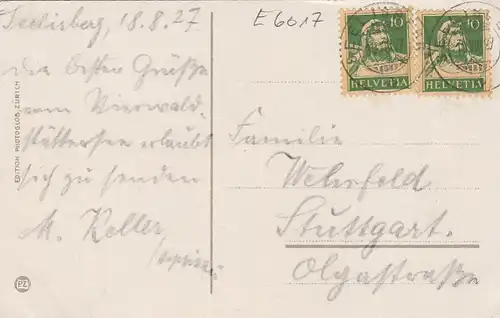 Seelisberg, 18.8.27
E6017
die besten Grüße
vom Vierwald-
stättersee erlaubt
sich zu senden
M. Keller
Familie
Wehrfeld
Stuttgart.
Olgastraße
10
HELVETIA
10
HELVETIA
EDITION PHOTOGLOB, ZÜRICH
PZ